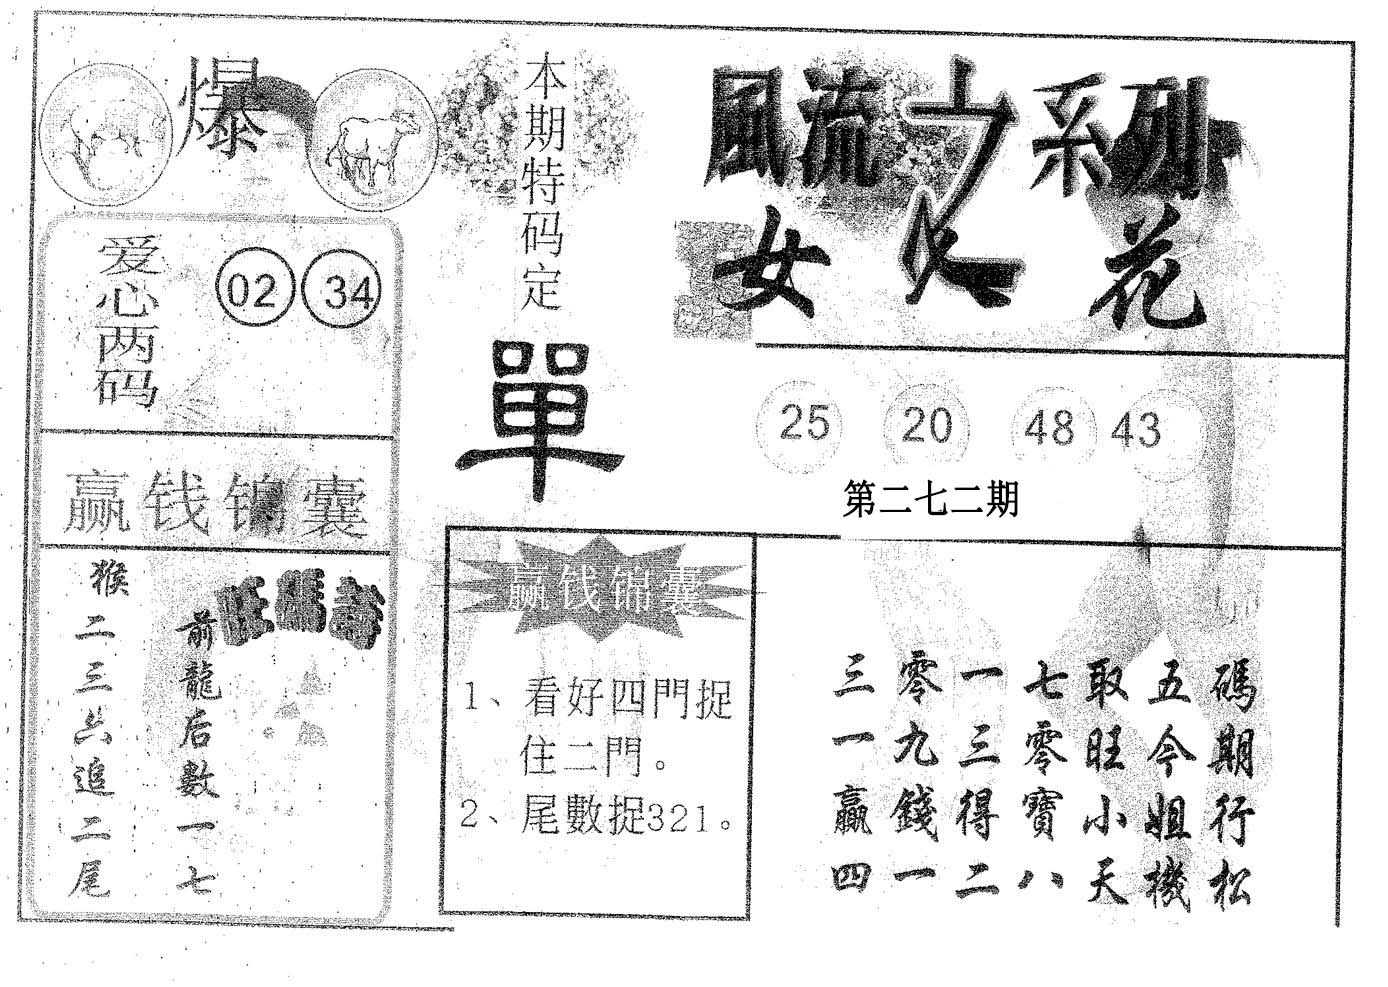 爆
本期特码定
單
風流之系列
女人花
爱心两码
02 34
25 20 48 43
第二七二期
赢钱锦囊
猴二三六追二尾
前龍后數一七
赢钱锦囊
1、看好四門捉
住二門。
2、尾數捉321。
三零一七取五碼
一九三零旺今期
贏錢得寶小姐行
四一二八天機松